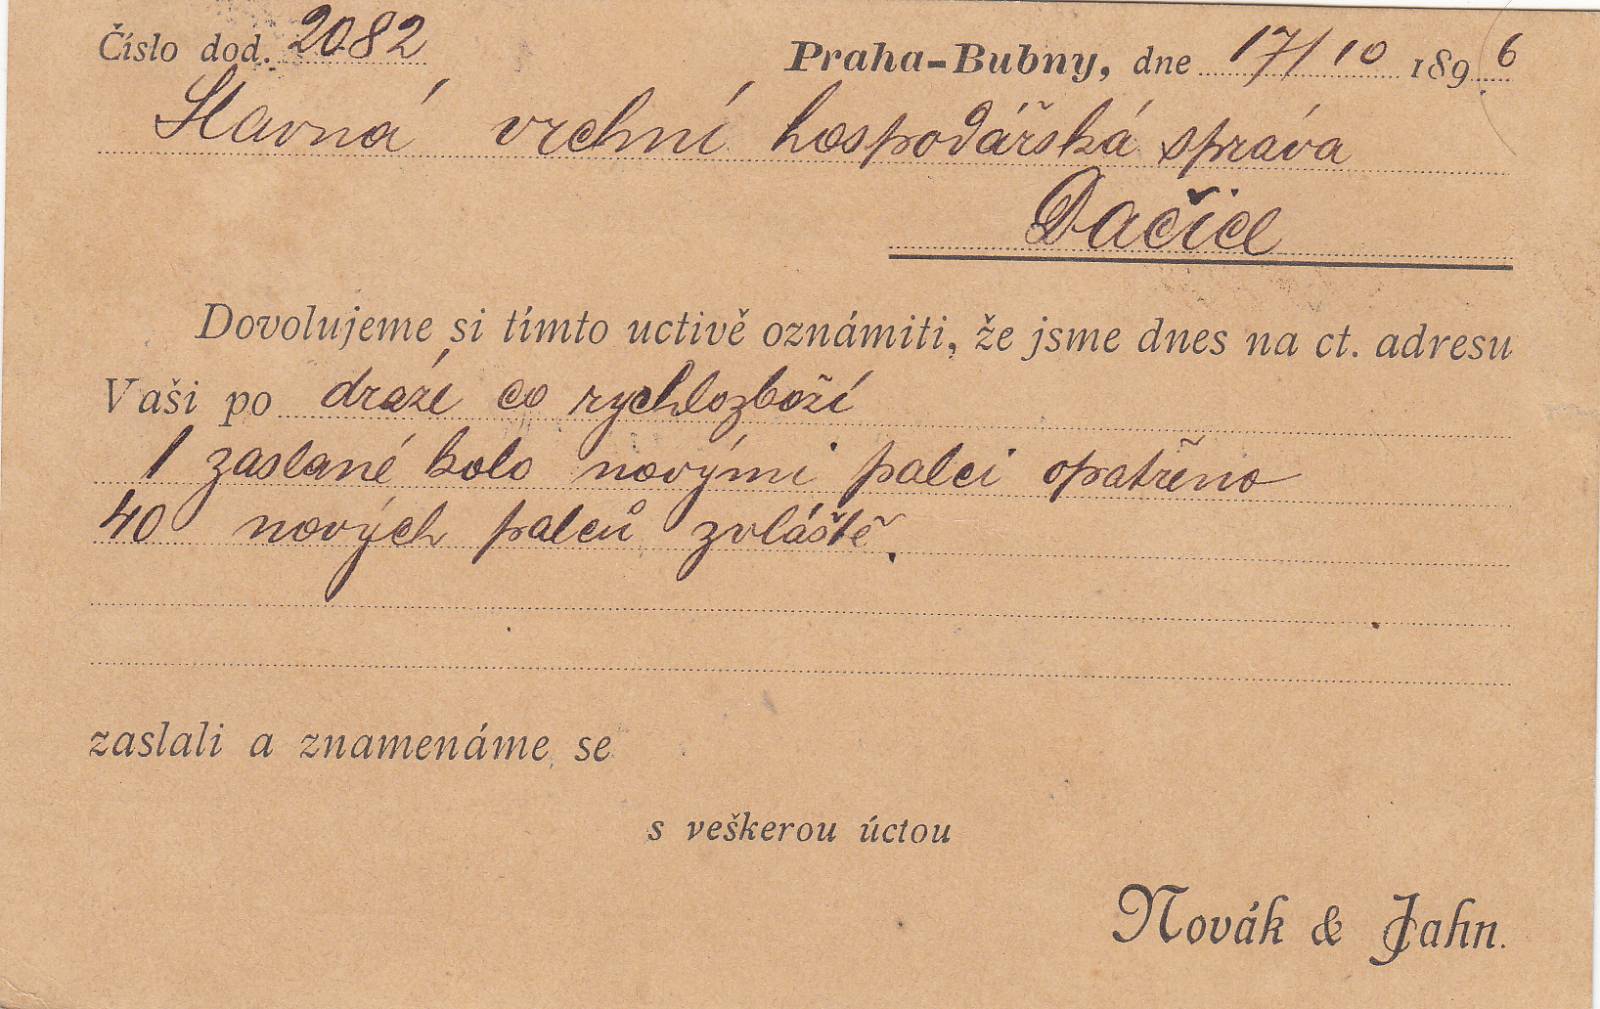 Číslo dod. 2082 Praha-Bubny, dne 17/10 1896
Slavná vrchní hospodářská správa
Dačice
Dovolujeme si tímto uctivě oznámiti, že jsme dnes na ct. adresu
Vaši po dráze co rychlozboží
1 zaslané kolo novými palci opatřeno
40 nových palců zvláště.
zaslali a znamenáme se
s veškerou úctou
Novák & Jahn.